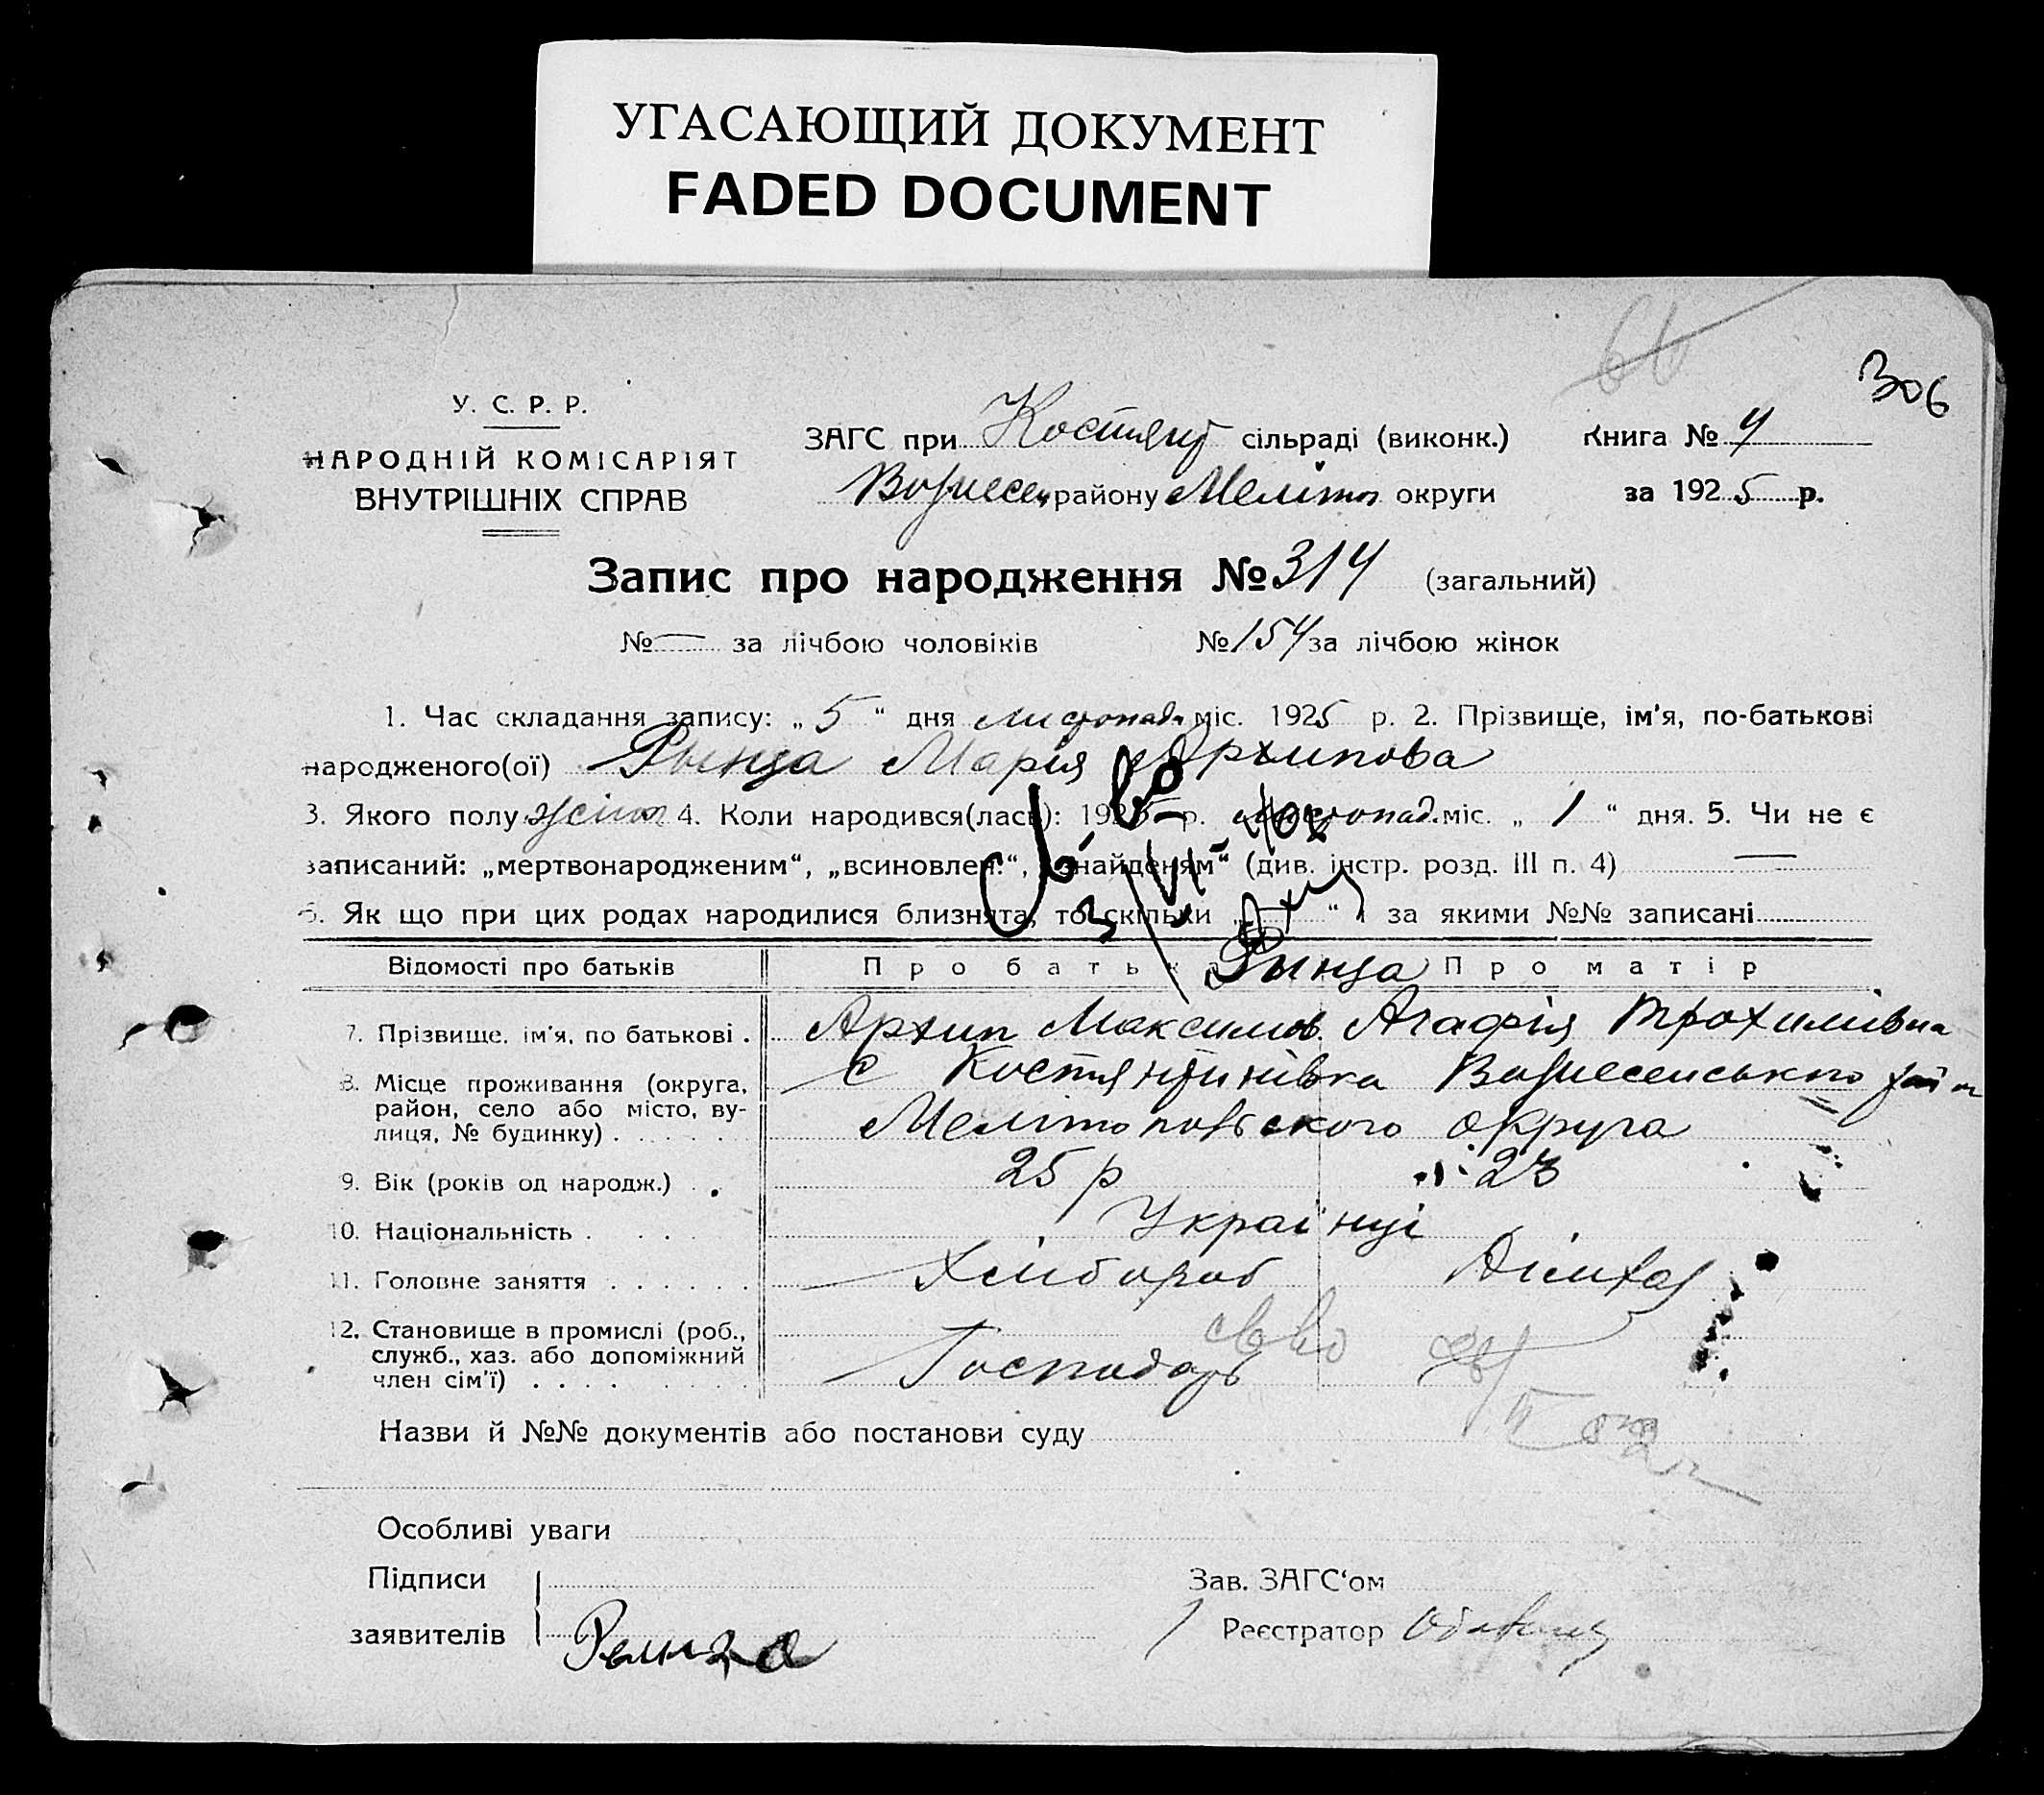 УГАСАЮЩИЙ ДОКУМЕНТ
FADED DOCUMENT
306
У. С. Р. Р.
НАРОДНІЙ КОМІСАРІЯТ
ВНУТРІШНІХ СПРАВ
ЗАГС при Костянт сільраді (виконк.)
Вознесен району Меліт округи
Книга № 4
за 1925 р.
Запис про народження № 314 (загальний)
№ — за лічбою чоловіків № 154 за лічбою жінок
1. Час складання запису: „ 5 “ дня листопад міс. 1925 р. 2. Прізвище, ім'я, по-батькові
народженого(ої) Рынза Марія Архипова
3. Якого полу жіноч 4. Коли народився(лась): 1925 р. листопад. міс. „ 1 “ дня. 5. Чи не є
записаний: „мертвонародженим“, „всиновлен.“, „знайденям“ (див. інстр. розд. III п. 4) —
6. Як що при цих родах народилися близнята, то скільки „ “ і за якими №№ записані
Відомості про батьків Про батька Про матір
Рынза
7. Прізвище, ім'я, по батькові . Архип Максимов. Агафія Трохимівна
8. Місце проживання (округа, район, село або місто, вулиця, № будинку) . . . . . .
с Костянтинівка Вознесенського район
Мелітопольского округа
9. Вік (років од народж.) . . 25 р 23
10. Національність . . . . Українці
11. Головне заняття . . . . . . Хлібороб
12. Становище в промислі (роб.,
служб., хаз. або допоміжний
член сім'ї) . . . . . . . .
Господарь
Назви й №№ документів або постанови суду
Особливі уваги
Підписи
заявителів Рынза
Зав. ЗАГС‘ом
Реєстратор